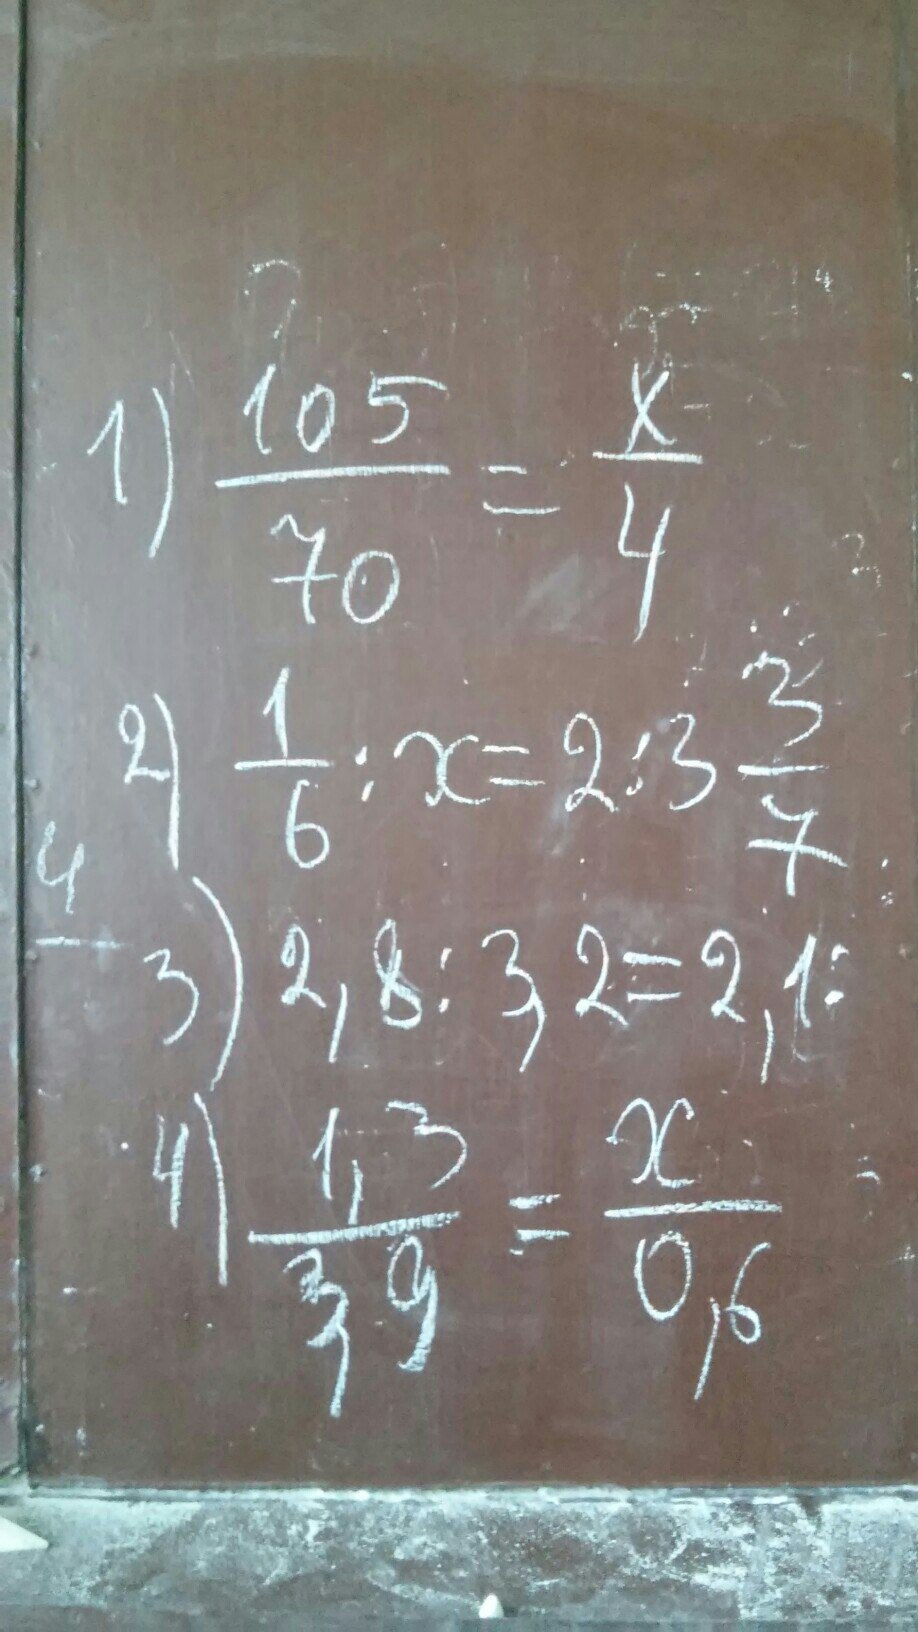 1) 105/70 = x/4
2) 1/6 : x = 2 : 3 3/7
4
3) 2,8 : 3,2 = 2,1 :
4) 1,3/3,9 = x/0,6